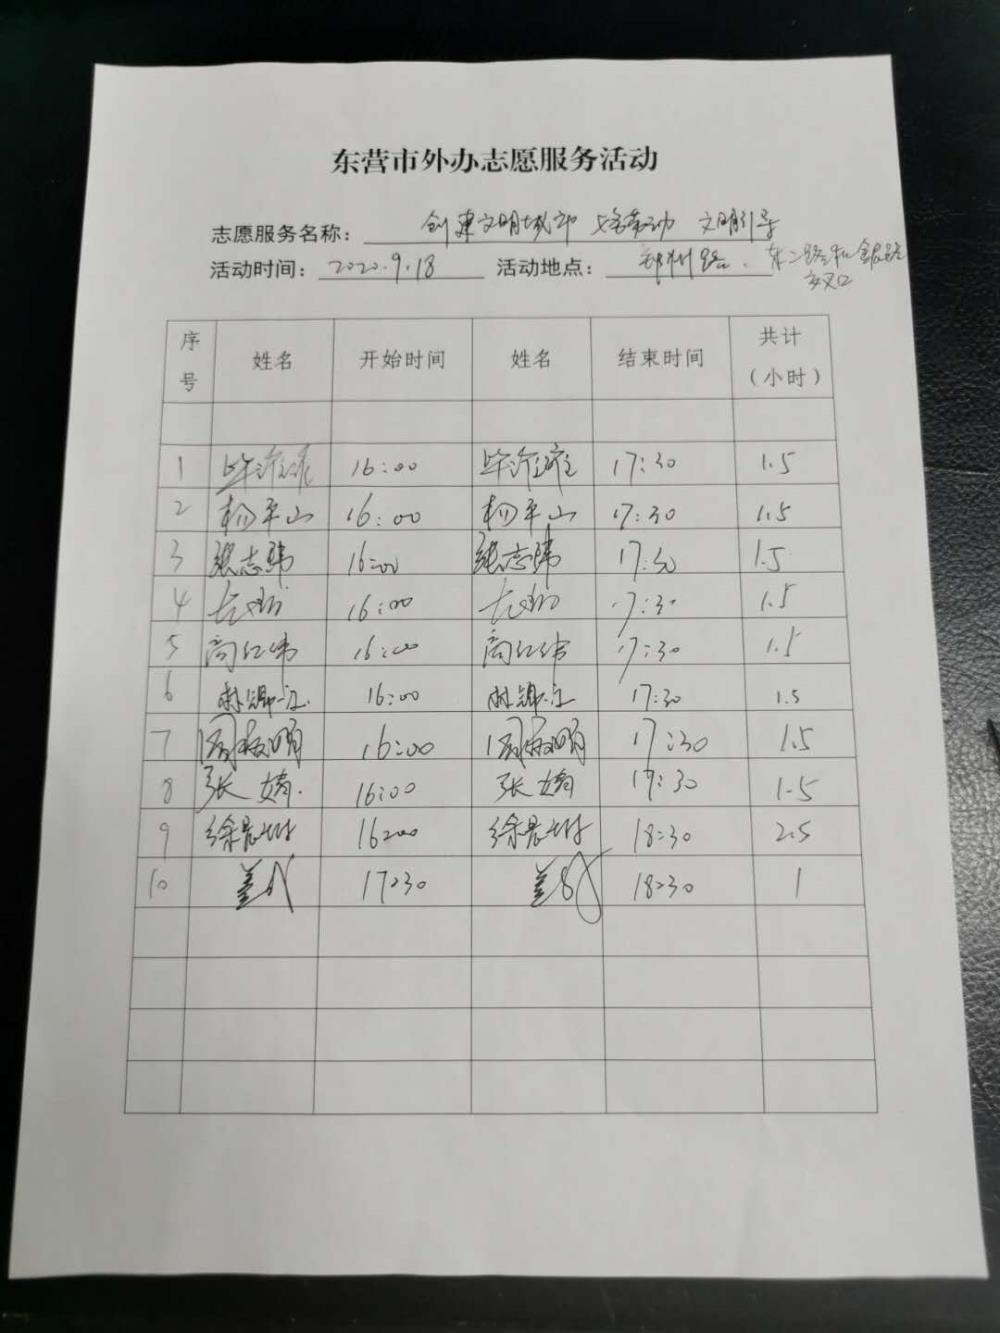 东营市外办志愿服务活动
志愿服务名称： 创建文明城市 文明引导
活动时间： 2020.9.18 活动地点： 郑州路、东二路和银路
交叉口
序号 姓名 开始时间 姓名 结束时间 共计（小时）
1 16:00 17:30 1.5
2 杨平山 16:00 杨平山 17:30 1.5
3 张志伟 16:00 张志伟 17:30 1.5
4 16:00 17:30 1.5
5 商红伟 16:00 商红伟 17:30 1.5
6 16:00 17:30 1.5
7 周 16:00 周 17:30 1.5
8 张婧 16:00 张婧 17:30 1.5
9 徐晨 16:00 徐晨 18:30 2.5
10 17:30 18:30 1